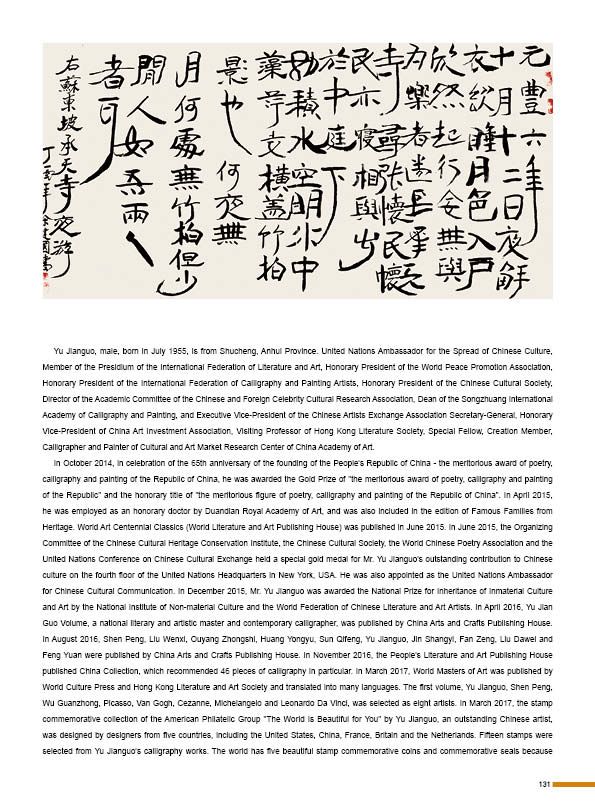 元豐六年
十月十二日夜解
衣欲睡月色入戶
欣然起行念無與
為樂者遂至承天
寺尋張懷民懷
民亦寢相與步
於中庭下
積水空明水中
藻荇交橫蓋竹柏
影也 何夜無
月何處無竹柏但少
閒人如吾兩
者耳
右蘇東坡承天寺夜游
丁酉年余建國書
Yu Jianguo, male, born in July 1955, is from Shucheng, Anhui Province. United Nations Ambassador for the Spread of Chinese Culture,
Member of the Presidium of the International Federation of Literature and Art, Honorary President of the World Peace Promotion Association,
Honorary President of the International Federation of Calligraphy and Painting Artists, Honorary President of the Chinese Cultural Society,
Director of the Academic Committee of the Chinese and Foreign Celebrity Cultural Research Association, Dean of the Songzhuang International
Academy of Calligraphy and Painting, and Executive Vice-President of the Chinese Artists Exchange Association Secretary-General, Honorary
Vice-President of China Art Investment Association, Visiting Professor of Hong Kong Literature Society, Special Fellow, Creation Member,
Calligrapher and Painter of Cultural and Art Market Research Center of China Academy of Art.
In October 2014, in celebration of the 65th anniversary of the founding of the People's Republic of China - the meritorious award of poetry,
calligraphy and painting of the Republic of China, he was awarded the Gold Prize of "the meritorious award of poetry, calligraphy and painting
of the Republic" and the honorary title of "the meritorious figure of poetry, calligraphy and painting of the Republic of China". In April 2015,
he was employed as an honorary doctor by Duandian Royal Academy of Art, and was also included in the edition of Famous Families from
Heritage. World Art Centennial Classics (World Literature and Art Publishing House) was published in June 2015. In June 2015, the Organizing
Committee of the Chinese Cultural Heritage Conservation Institute, the Chinese Cultural Society, the World Chinese Poetry Association and the
United Nations Conference on Chinese Cultural Exchange held a special gold medal for Mr. Yu Jianguo's outstanding contribution to Chinese
culture on the fourth floor of the United Nations Headquarters in New York, USA. He was also appointed as the United Nations Ambassador
for Chinese Cultural Communication. In December 2015, Mr. Yu Jianguo was awarded the National Prize for Inheritance of Inmaterial Culture
and Art by the National Institute of Non-material Culture and the World Federation of Chinese Literature and Art Artists. In April 2016, Yu Jian
Guo Volume, a national literary and artistic master and contemporary calligrapher, was published by China Arts and Crafts Publishing House.
In August 2016, Shen Peng, Liu Wenxi, Ouyang Zhongshi, Huang Yongyu, Sun Qifeng, Yu Jianguo, Jin Shangyi, Fan Zeng, Liu Dawei and
Feng Yuan were published by China Arts and Crafts Publishing House. In November 2016, the People's Literature and Art Publishing House
published China Collection, which recommended 46 pieces of calligraphy in particular. In March 2017, World Masters of Art was published by
World Culture Press and Hong Kong Literature and Art Society and translated into many languages. The first volume, Yu Jianguo, Shen Peng,
Wu Guanzhong, Picasso, Van Gogh, Cezanne, Michelangelo and Leonardo Da Vinci, was selected as eight artists. In March 2017, the stamp
commemorative collection of the American Philatelic Group "The World is Beautiful for You" by Yu Jianguo, an outstanding Chinese artist,
was designed by designers from five countries, including the United States, China, France, Britain and the Netherlands. Fifteen stamps were
selected from Yu Jianguo's calligraphy works. The world has five beautiful stamp commemorative coins and commemorative seals because
131